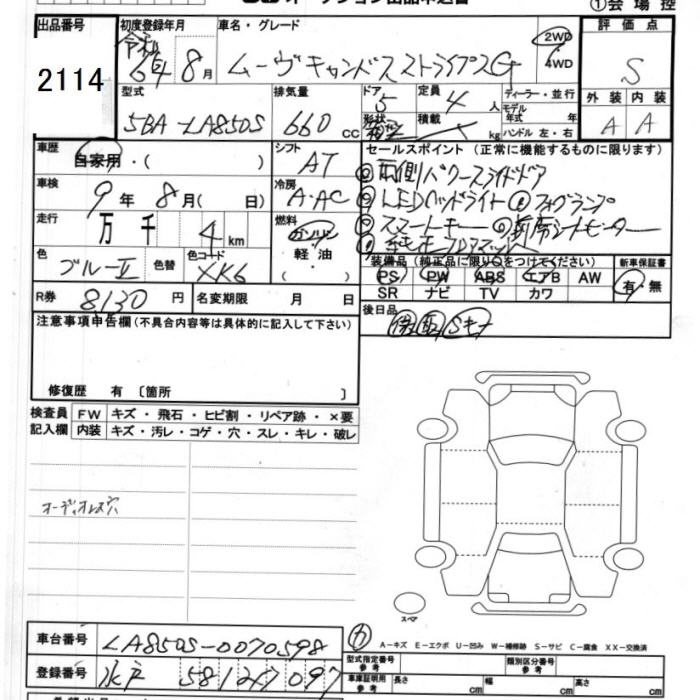 ①会場控
出品番号 初度登録年月 車名・グレード 評価点
2114
令和6年8月 ムーヴキャンバスストライプスG 2WD 4WD S
型式 排気量 ドア 定員 ディーラー・並行 外装 内装
5BA-LA850S 660cc 5 4人 モデル年式 年式 A A
形状 積載 kg ハンドル 左・右
車歴 シフト セールスポイント(正常に機能するものに限ります)
自家用・( ) AT 両側パワースライドドア
車検 冷房 LEDヘッドライト フォグランプ
9年8月( 日) A・AC スマートキー 前席シートヒーター
走行 燃料
万 千 4km ガソリン 軽油・( )
色 色替 色コード 装備品(純正品に限り○をつけてください) 新車保証書
ブルーII XK6 PS PW ABS エアB AW 有・無
SR ナビ TV カワ
R券 8130円 名変期限 月 日
後日品
注意事項申告欄(不具合内容等は具体的に記入して下さい)
保 取 Sキー
修復歴 有 〔箇所 〕
検査員 FW キズ・飛石・ヒビ割・リペア跡・×要
記入欄 内装 キズ・汚レ・コゲ・穴・スレ・キレ・破レ
オーディオレス穴
スペア
車台番号 LA850S-0070598
A-キズ E-エクボ U-凹み W-補修跡 S-サビ C-腐食 XX-交換済
登録番号 水戸 581 097
型式指定番号 参考 類別区分番号 参考
車庫証明用 参考 長さ cm 幅 cm 高さ cm